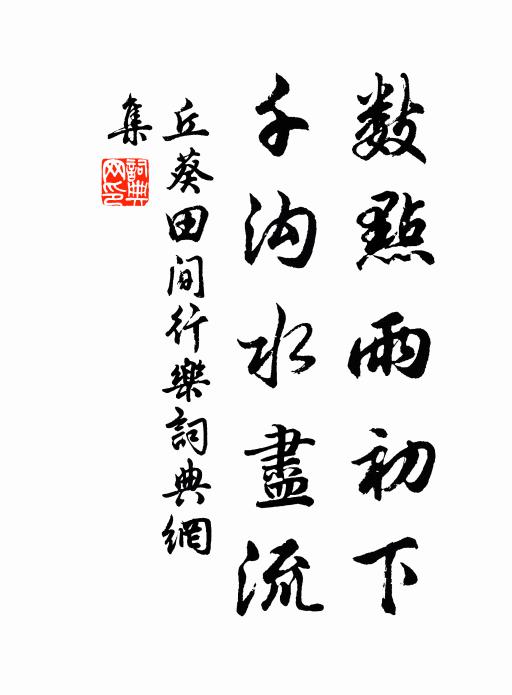 數點雨初下
千沟水盡流
丘葵田间行樂詞典網
集
詞典
网印